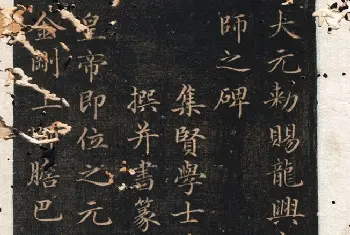 大元勅賜龍興
師之碑
集賢學士
撰并書篆
皇帝即位之元
金剛上師膽巴